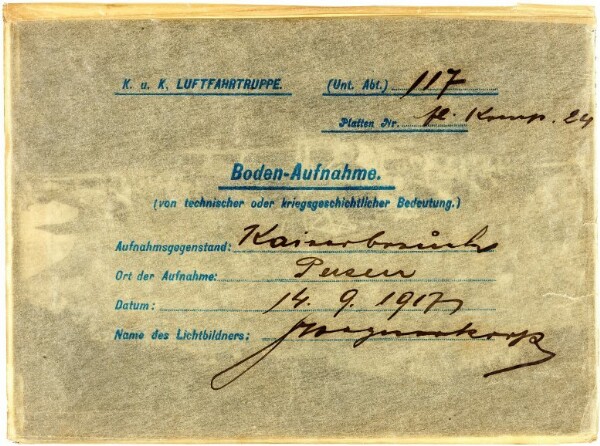 K. u. K. LUFTFAHRTRUPPE. (Unt. Abt.) 117
Platten Nr. fl. Komp. 24
Boden-Aufnahme.
(von technischer oder kriegsgeschichtlicher Bedeutung.)
Aufnahmsgegenstand: Kaiserbesuch
Ort der Aufnahme: Persen
Datum: 14. 9. 1917
Name des Lichtbildners: